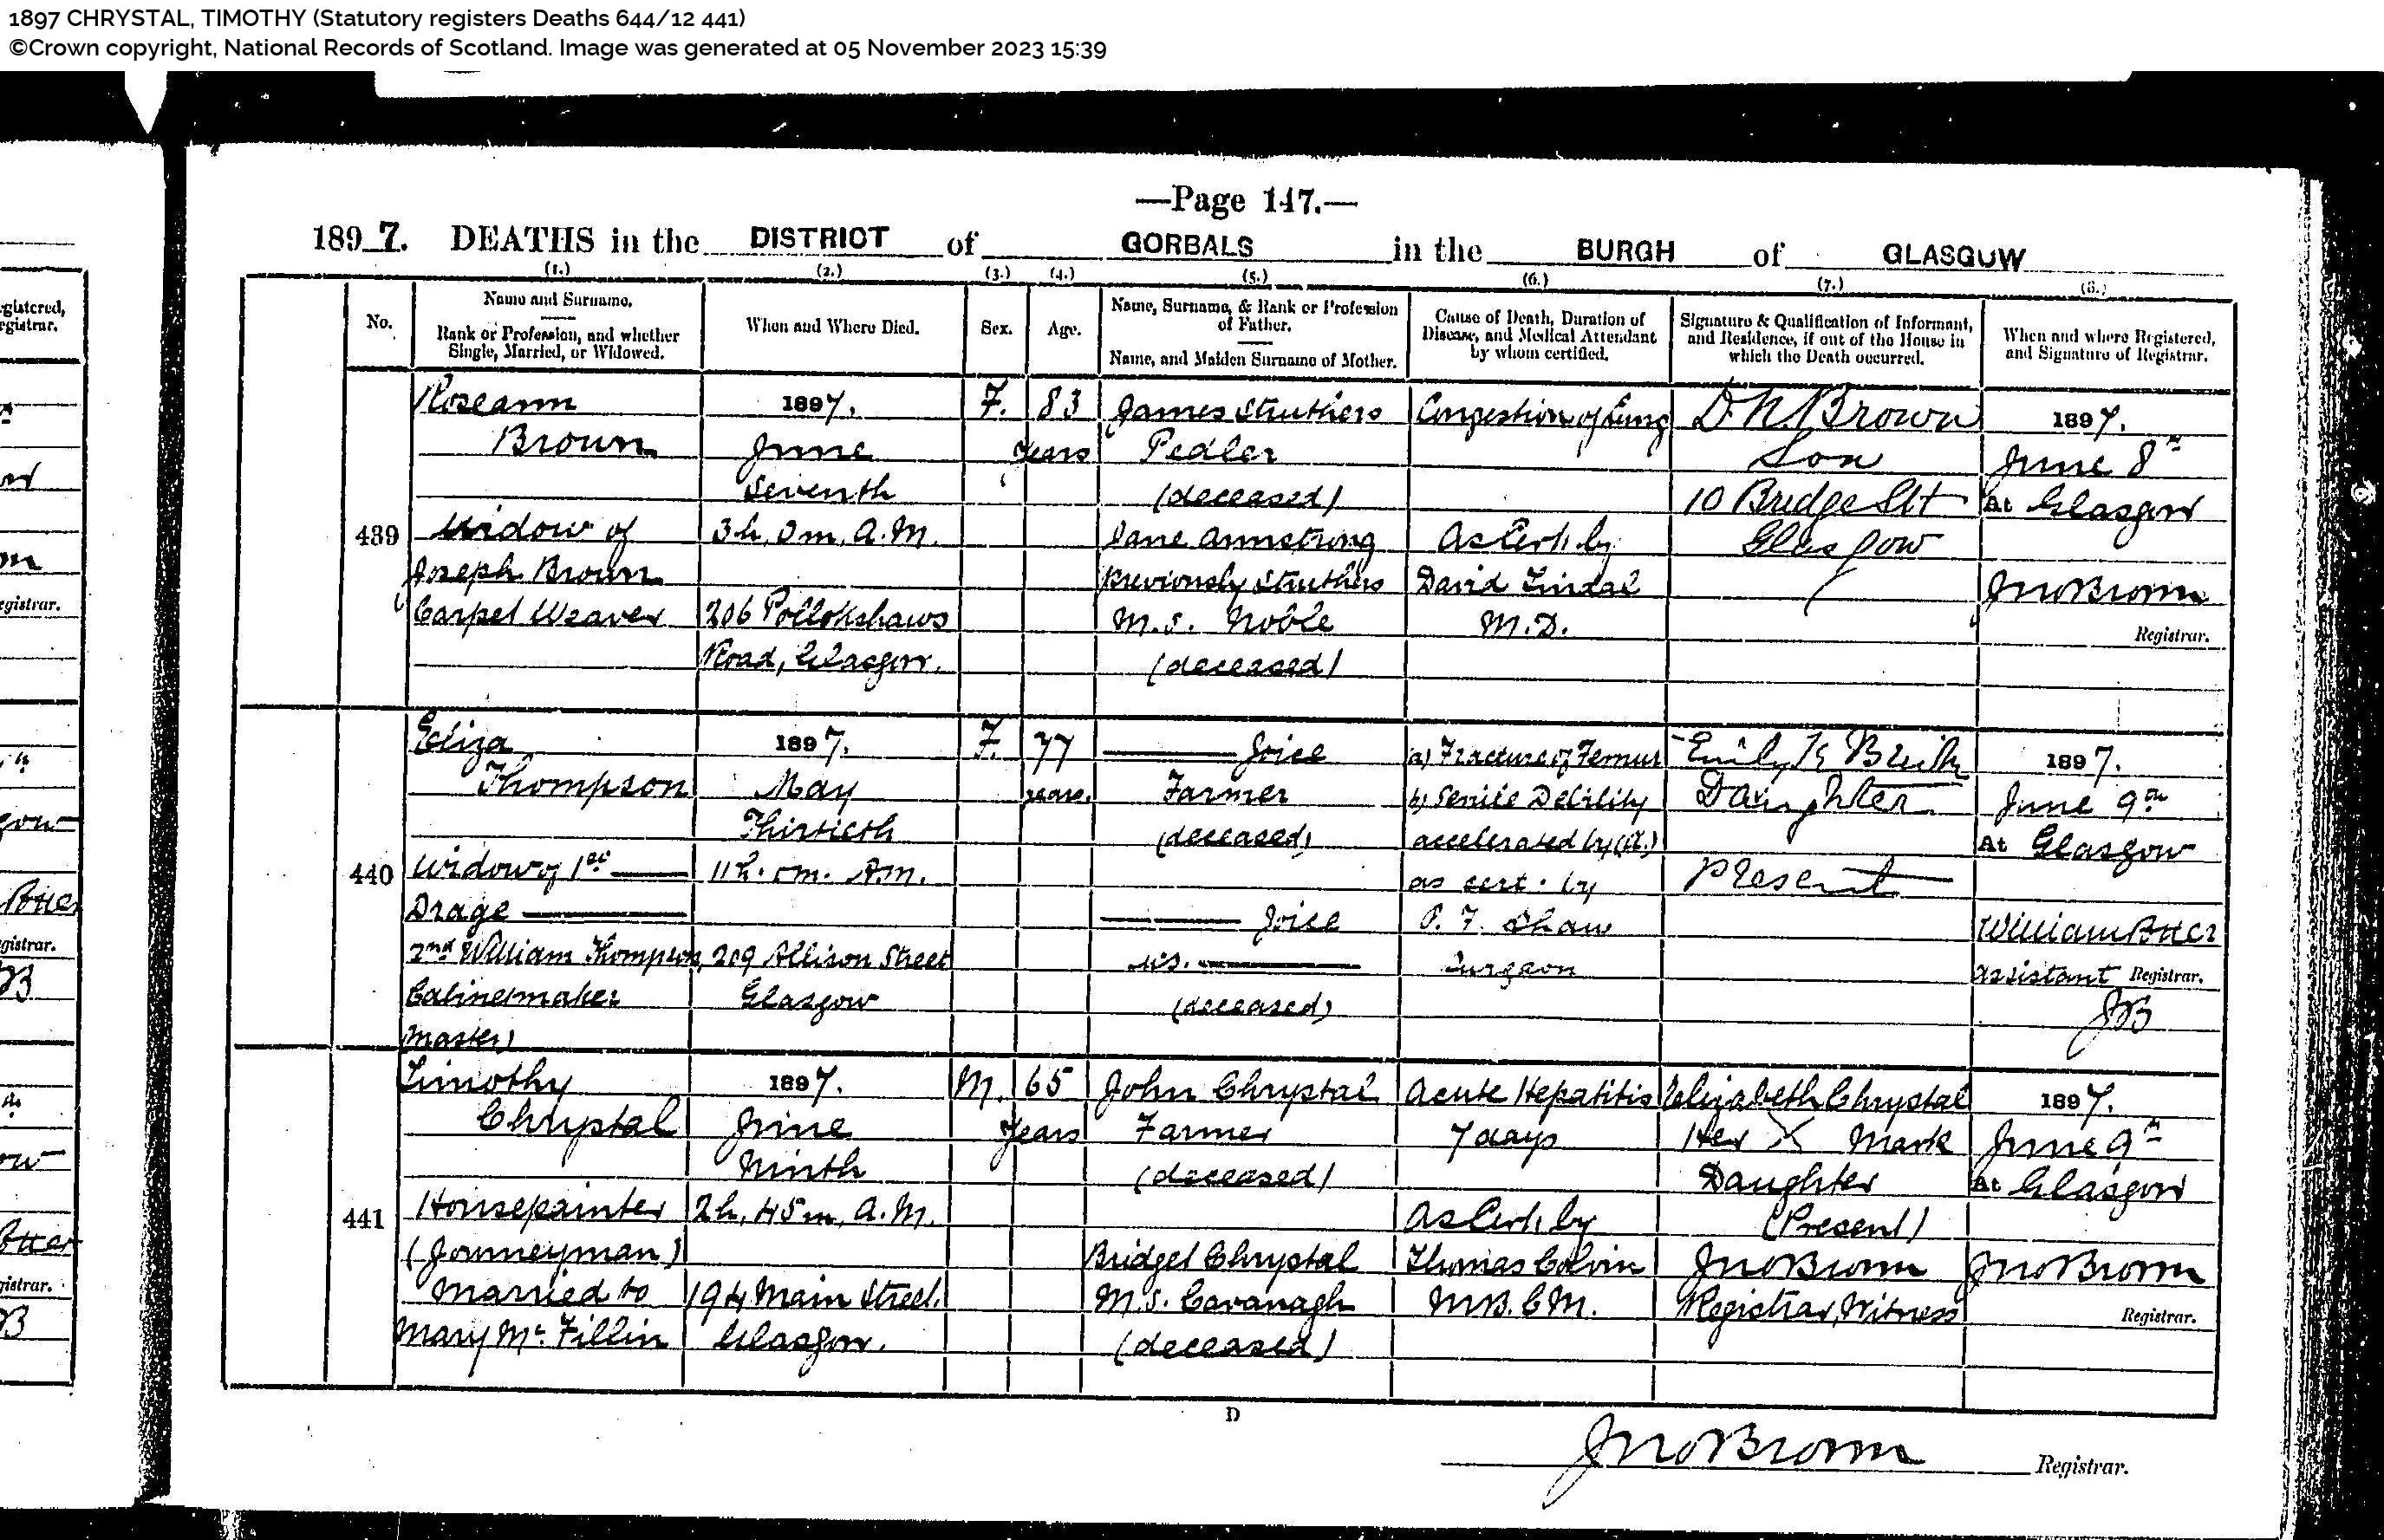 1897 CHRYSTAL, TIMOTHY (Statutory registers Deaths 644/12 441)
©Crown copyright, National Records of Scotland. Image was generated at 05 November 2023 15:39
—Page 147.—
1897. DEATHS in the DISTRICT of GORBALS in the BURGH of GLASGOW
(1.) (2.) (3.) (4.) (5.) (6.) (7.) (8.)
No.
Name and Surname.
Rank or Profession, and whether
Single, Married, or Widowed.
When and Where Died.
Sex.
Age.
Name, Surname, & Rank or Profession
of Father.
Name, and Maiden Surname of Mother.
Cause of Death, Duration of
Disease, and Medical Attendant
by whom certified.
Signature & Qualification of Informant,
and Residence, if out of the House in
which the Death occurred.
When and where Registered,
and Signature of Registrar.
439
Roseann
Brown
Widow of
Joseph Brown
Carpet Weaver
1897.
June
Seventh
3h. 0m. A.M.
206 Pollokshaws
Road, Glasgow.
F.
83
years
James Struthers
Pedler
(deceased)
Jane Armstrong
previously Struthers
M.S. Noble
(deceased)
Congestion of Lung
As Cert. by
David Tindal
M.D.
D. N. Brown
Son
10 Bridge St
Glasgow
1897.
June 8th
At Glasgow
Jno Brown
Registrar.
440
Eliza
Thompson
Widow of 1st ——
Drage ——
2nd William Thompson,
Cabinetmaker
Master)
1897.
May
Thirtieth
11h. 5m. A.M.
209 Allison Street
Glasgow
F.
77
years.
—— Joice
Farmer
(deceased)
—— Joice
M.S. ——
(deceased)
a) Fracture of Femur
b) Senile Debility
accelerated by (a.)
as cert. by
P. F. Shaw
Surgeon
Emily K
Daughter
Present
1897.
June 9th
At Glasgow
William Potter
Assistant Registrar.
JB
441
Timothy
Chrystal
Housepainter
(Journeyman)
Married to
Mary Mc. Fillin
1897.
June
Ninth
2h. 45m. A.M.
194 Main Street.
Glasgow.
M.
65
years
John Chrystal
Farmer
(deceased)
Bridget Chrystal
M.S. Cavanagh
(deceased)
Acute Hepatitis
7 days
As Cert. by
Thomas Colvin
M.B. C.M.
Elizabeth Chrystal
Her X Mark
Daughter
(Present)
Jno Brown
Registrar, Witness
1897.
June 9th
At Glasgow
Jno Brown
Registrar.
D
Jno Brown Registrar.